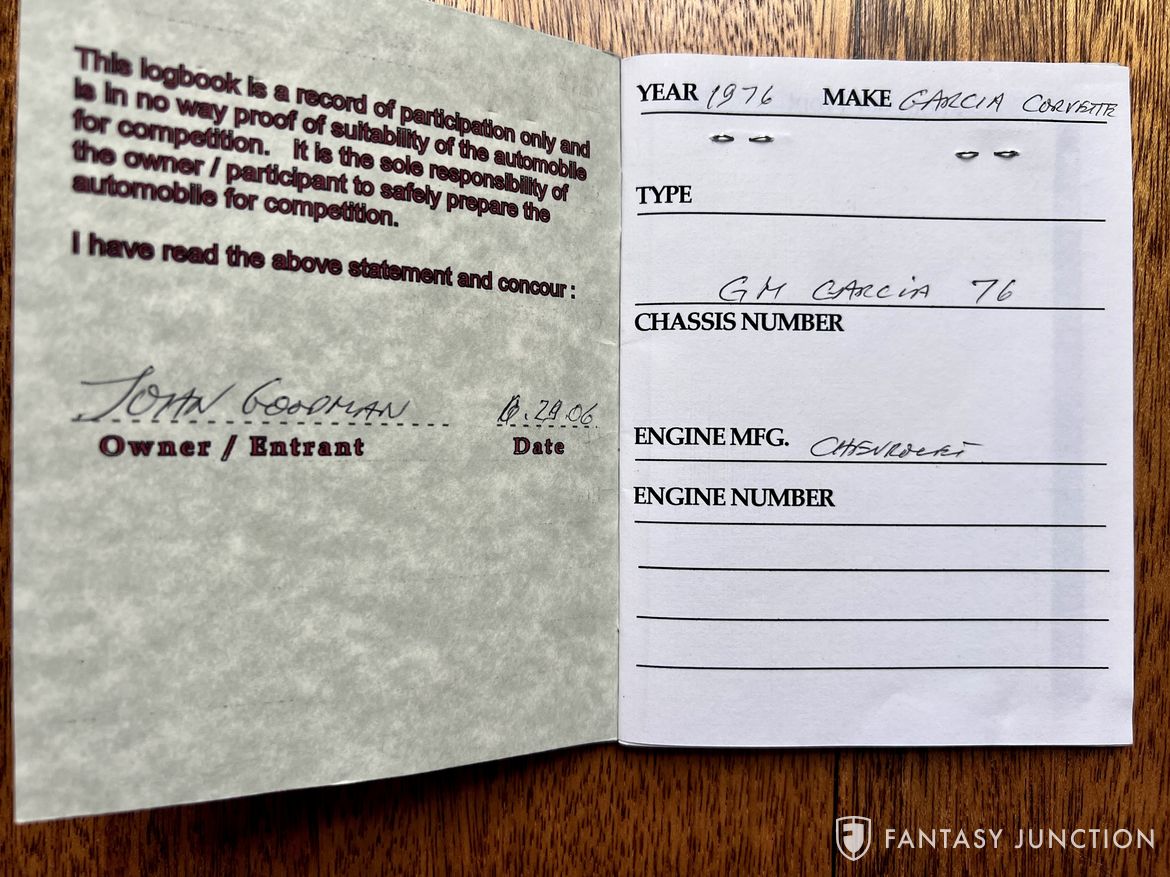 This logbook is a record of participation only and
is in no way proof of suitability of the automobile
for competition. It is the sole responsibility of
the owner / participant to safely prepare the
automobile for competition.
I have read the above statement and concour :
JOHN GOODMAN 6.29.06
Owner / Entrant Date
YEAR 1976 MAKE GARCIA CORVETTE
TYPE
GM GARCIA 76
CHASSIS NUMBER
ENGINE MFG. CHEVROLET
ENGINE NUMBER
FANTASY JUNCTION